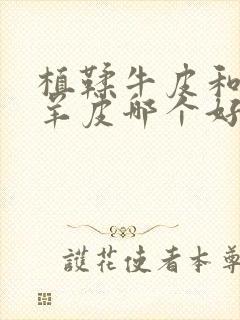 植鞣牛皮和
羊皮哪个好
護花使者本尊